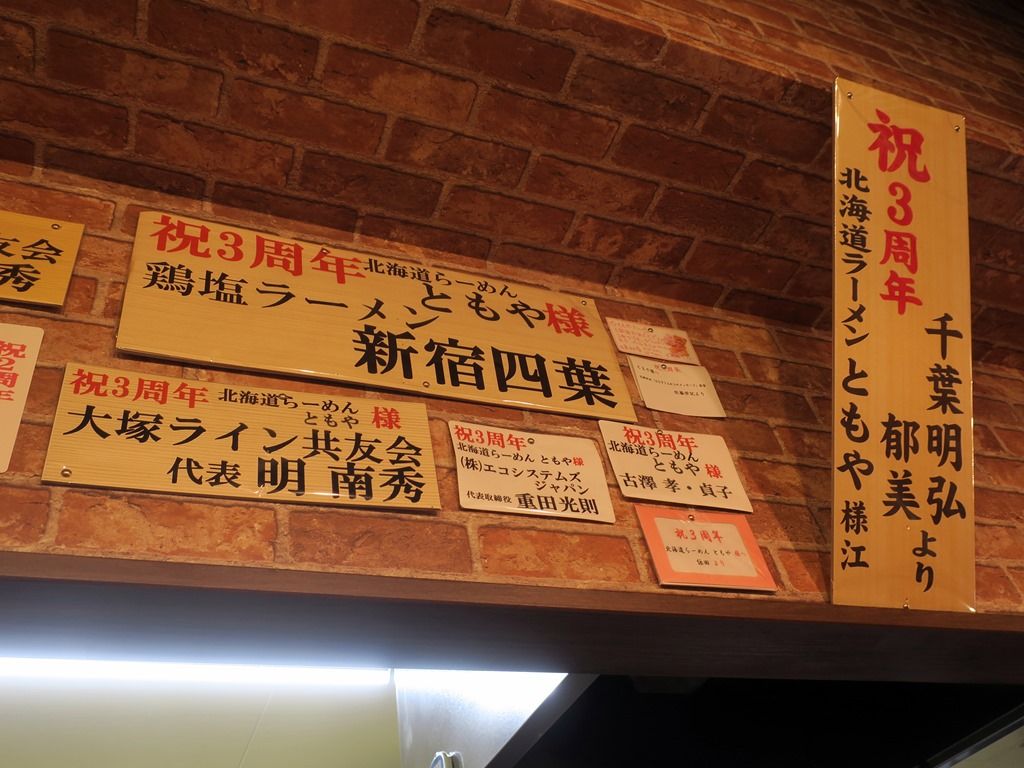 友会
秀
祝2周年
祝3周年
北海道らーめん
ともや様
鶏塩ラーメン
新宿四葉
祝3周年
北海道らーめん
ともや 様
大塚ライン共友会
代表 明 南秀
祝3周年
北海道らーめん ともや様
(株)エコシステムズ
ジャパン
代表取締役 重田光則
祝3周年
北海道らーめん
ともや 様
古澤 孝・貞子
祝3周年
北海道らーめん ともや 様へ
より
祝3周年
北海道ラーメンともや様江
千葉明弘より
郁美